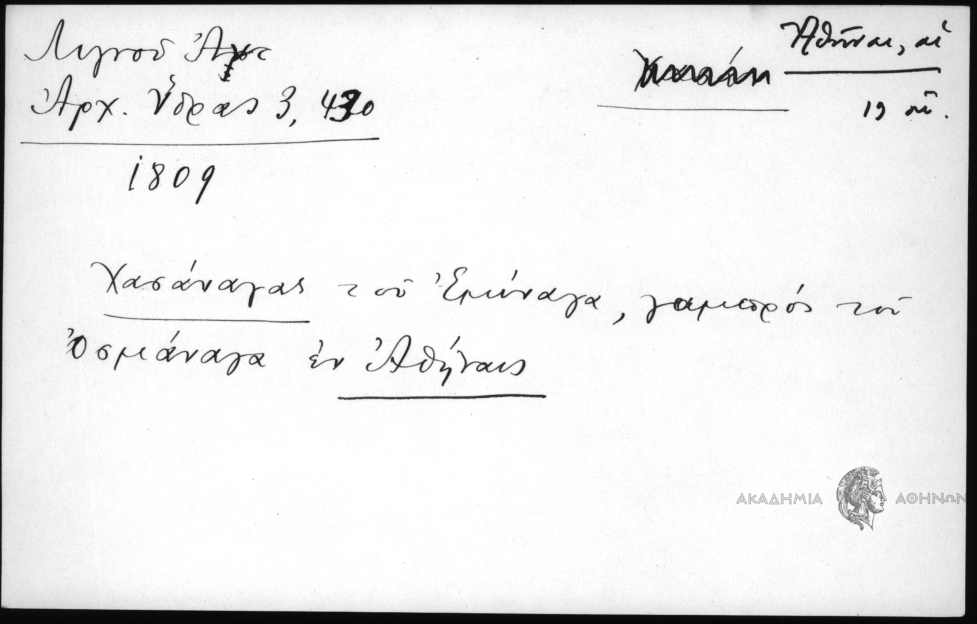 Λιγνοῦ Ἀντ
Ἀρχ. Ὕδρας 3, 430
1809
Ἀθῆναι, αἱ
19 αἰ.
Χασάναγας τοῦ Ἐμίναγα, γαμπρός τοῦ
Ὀσμάναγα ἐν Ἀθήναις
ΑΚΑΔΗΜΙΑ ΑΘΗΝΩΝ